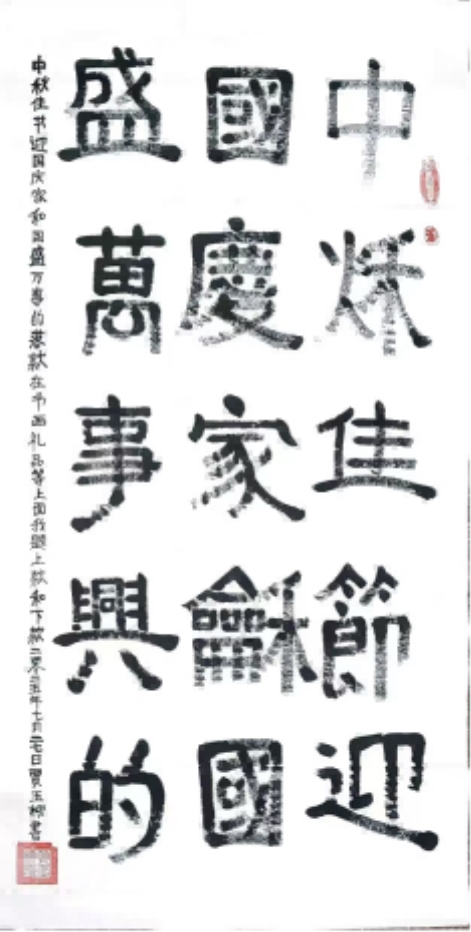 中秌佳節迎
國慶家龢國
盛萬事興的
中秋佳节迎国庆家和国盛万事的落款在书画礼品等上面我题上款和下款二零二五年七月二七日贾玉書